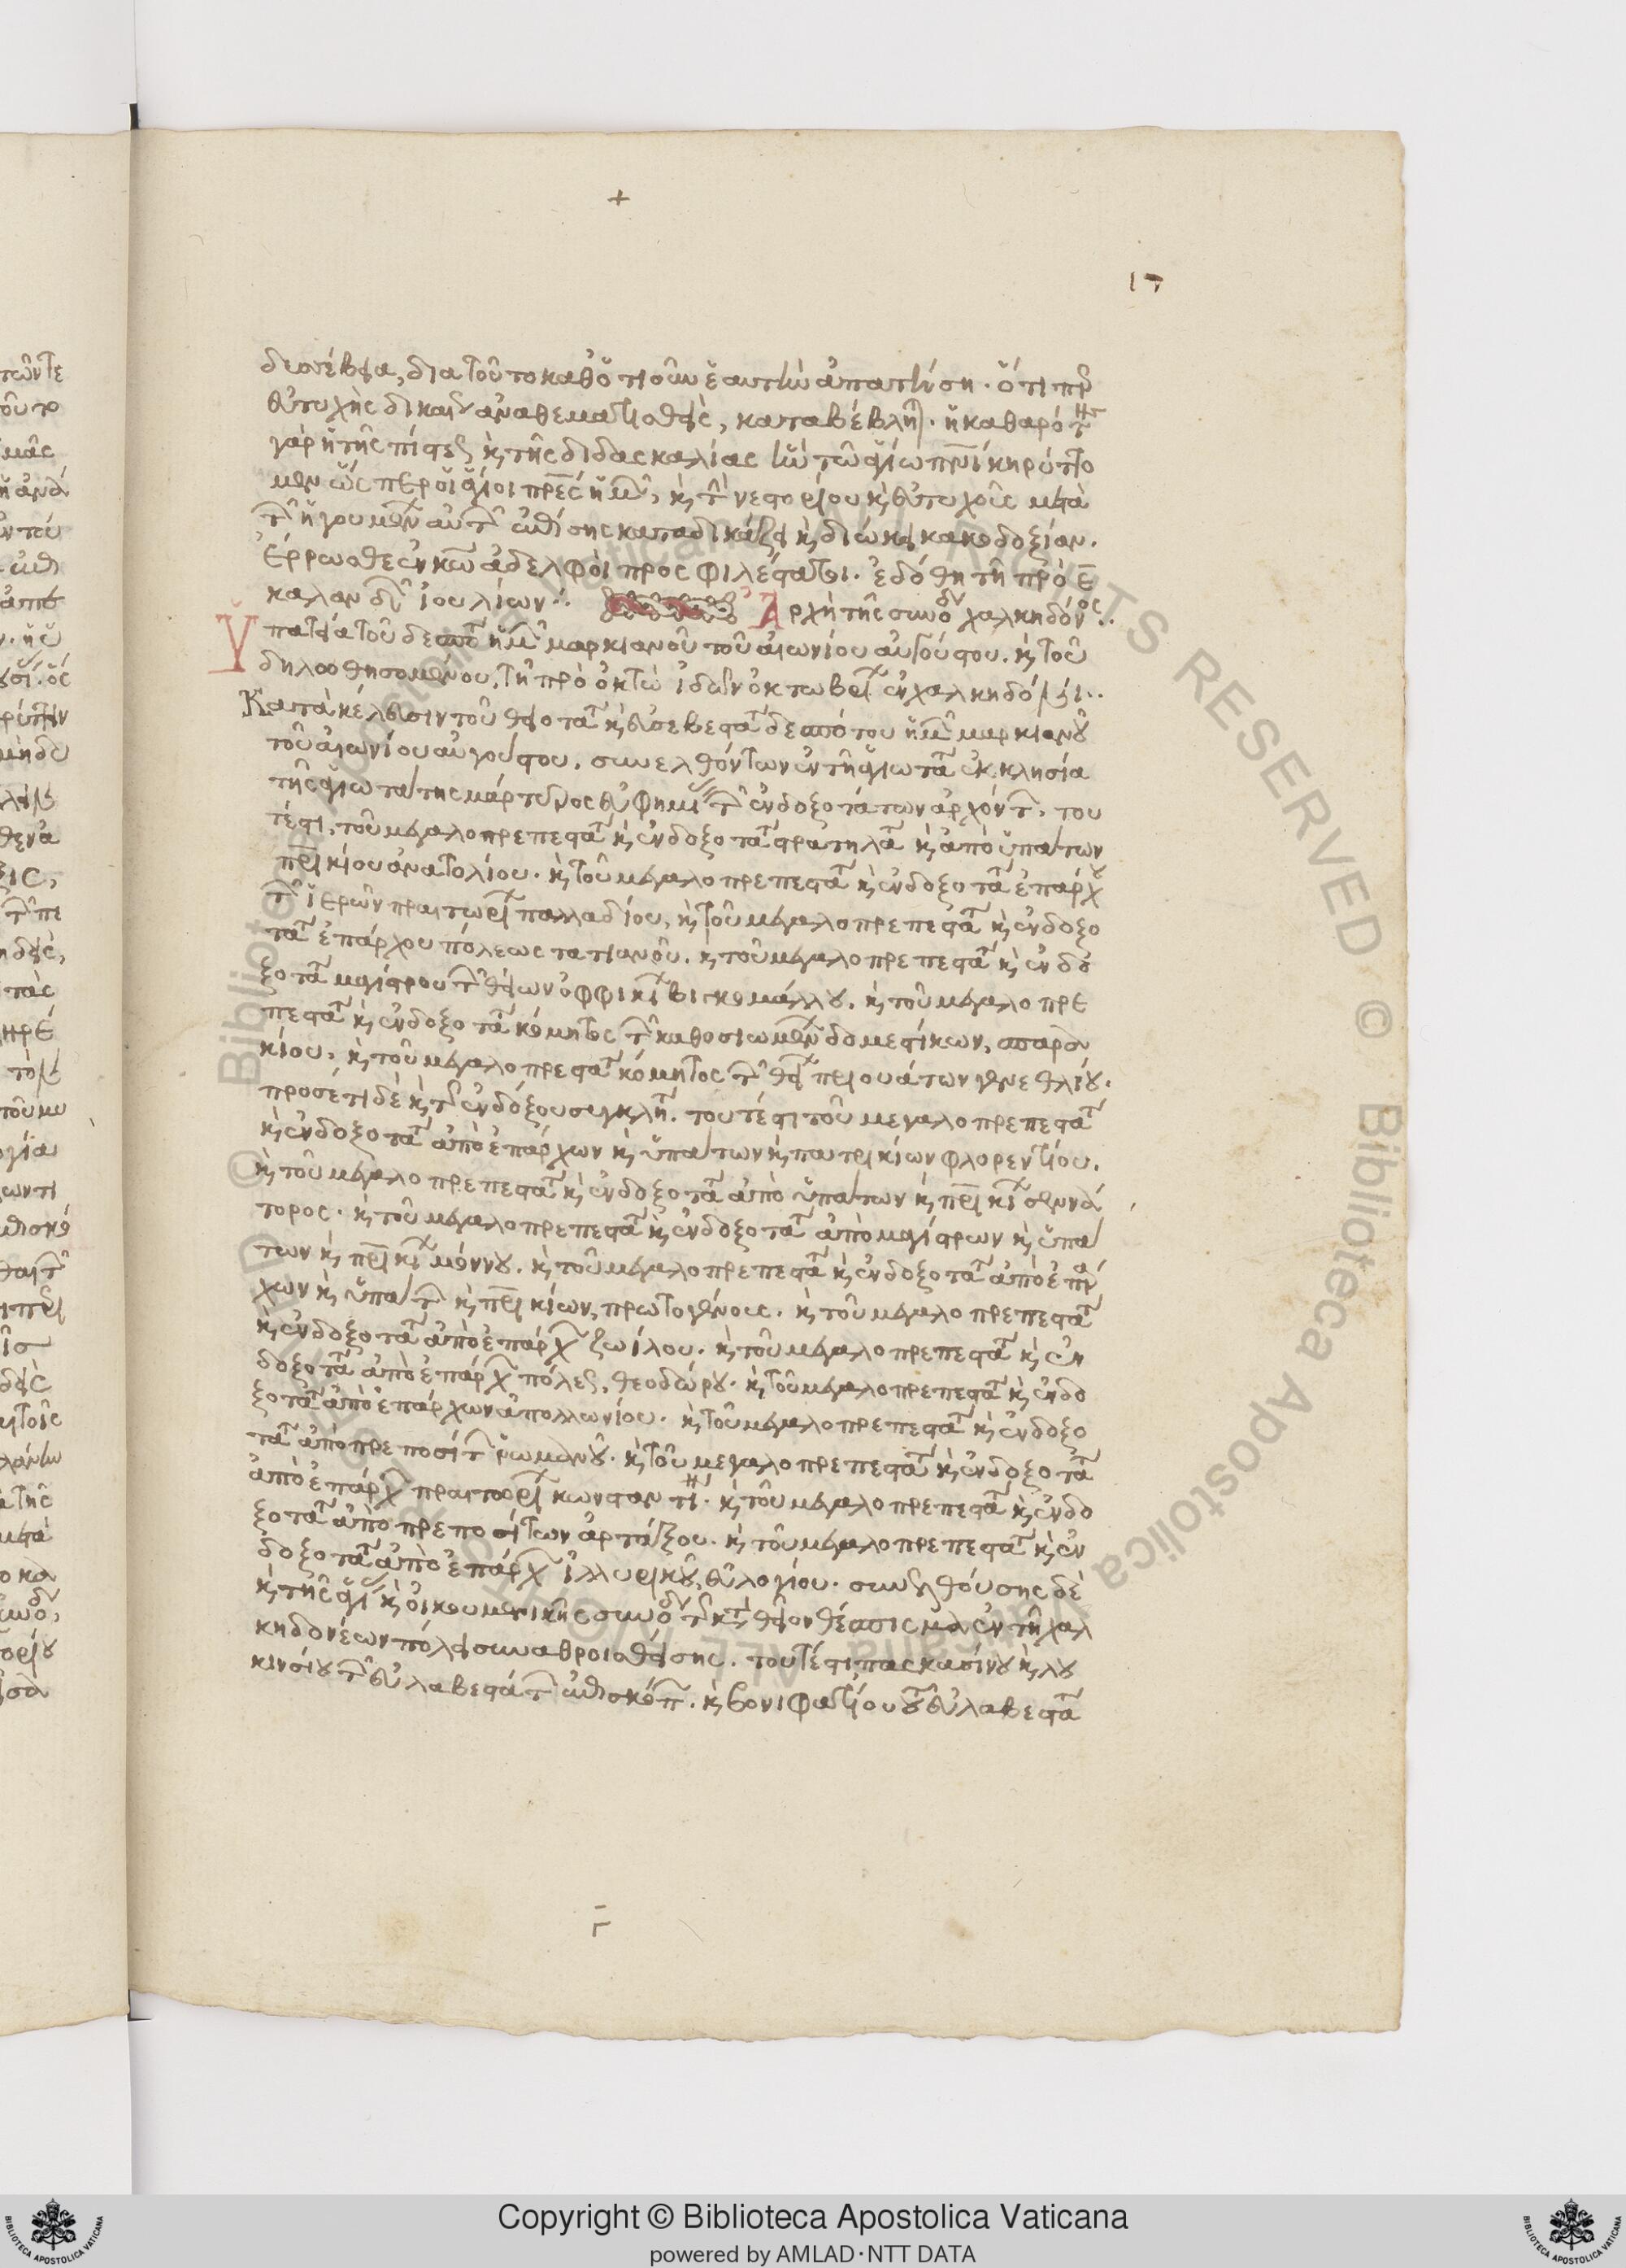 +
17
δυσσέβεια, δια τοῦτο καθό τι οὖν ἑαυτὴν ἀπατήση. ὅτι
Εὐτυχὴς δικαίως ἀναθεματισθεὶς, καταβέβληται. ἡ καθαρότης
γὰρ τῆς πίστεως καὶ τῆς διδασκαλίας ἣν τῶ ἁγίω πνεύματι κηρύττο
μεν ὥσπερ οἱ ἅγιοι πατέρες ἡμῶν, καὶ τὴν νεστορίου καὶ εὐτυχοῦς μετὰ
τῶν ἡγουμένων αὐτῶν ἐπίσης καταδικάζει καὶ διώκει κακοδοξίαν.
Ἔρρωσθε ἐν κω ἀδελφοὶ προσφιλέστατοι. ἐδόθη τῆ πρὸ ε
καλανδῶν ἰουλίων∴ Ἀρχὴ τῆς συνόδου χαλκηδόνος∴
Ὑπατεία τοῦ δεσπότου ἡμῶν μαρκιανοῦ τοῦ αἰωνίου αὐγούστου. καὶ τοῦ
δηλωθησομένου, τῆ πρὸ ὀκτὼ ἰδῶν ὀκτωβρίων ἐν χαλκηδόνι∴
Κατὰ κέλευσιν τοῦ θειοτάτου καὶ εὐσεβεστάτου δεσπότου ἡμῶν μαρκιανοῦ
τοῦ αἰωνίου αὐγούστου, συνελθόντων ἐν τῆ ἁγιωτάτη ἐκκλησία
τῆς ἁγιωτάτης μάρτυρος εὐφημίας τῶν ἐνδοξοτάτων ἀρχόντων, του
τέστι, τοῦ μεγαλοπρεπεστάτου καὶ ἐνδοξοτάτου στρατηλάτου καὶ ἀπὸ ὑπάτων
πατρικίου ἀνατολίου. καὶ τοῦ μεγαλοπρεπεστάτου καὶ ἐνδοξοτάτου ἐπάρχου
τῶν ἱερῶν πραιτωρίων παλλαδίου, καὶ τοῦ μεγαλοπρεπεστάτου καὶ ἐνδοξο
τάτου ἐπάρχου πόλεως τατιανοῦ. καὶ τοῦ μεγαλοπρεπεστάτου καὶ ἐνδο
ξοτάτου μαγίστρου τῶν θείων ὀφφικίων βικομάλλου. καὶ τοῦ μεγαλοπρε
πεστάτου καὶ ἐνδοξοτάτου κόμητος τῶν καθοσιωμένων δομεστίκων, σπαρα
κίου, καὶ τοῦ μεγαλοπρεστάτου κόμητος τῶν θείων πριουάτων γενεθλίου.
προσέτι δὲ καὶ τῆς ἐνδόξου συγκλήτου. τουτέστι τοῦ μεγαλοπρεπεστάτου
καὶ ἐνδοξοτάτου ἀπὸ ἐπάρχων καὶ ὑπάτων καὶ πατρικίων φλορεντίου.
καὶ τοῦ μεγαλοπρεπεστάτου καὶ ἐνδοξοτάτου ἀπὸ ὑπάτων καὶ πατρικίων σενά
τορος. καὶ τοῦ μεγαλοπρεπεστάτου καὶ ἐνδοξοτάτου ἀπὸ μαγίστρων καὶ ὑπά
των καὶ πατρικίων μόννου. καὶ τοῦ μεγαλοπρεπεστάτου καὶ ἐνδοξοτάτου ἀπὸ ἐπάρ
χων καὶ ὑπάτων καὶ πατρικίων, πρωτογένους. καὶ τοῦ μεγαλοπρεπεστάτου
καὶ ἐνδοξοτάτου ἀπὸ ἐπάρχων ζωίλου. καὶ τοῦ μεγαλοπρεπεστάτου καὶ ἐν
δοξοτάτου ἀπὸ ἐπάρχων πόλεως, θεοδώρου. καὶ τοῦ μεγαλοπρεπεστάτου καὶ ἐνδο
ξοτάτου ἀπὸ ἐπάρχων ἀπολλωνίου. καὶ τοῦ μεγαλοπρεπεστάτου καὶ ἐνδοξο
τάτου ἀπὸ πρεποσίτων ῥωμανοῦ. καὶ τοῦ μεγαλοπρεπεστάτου καὶ ἐνδοξοτάτου
ἀπὸ ἐπάρχων πραιτωρίων κωνσταντίνου. καὶ τοῦ μεγαλοπρεπεστάτου καὶ ἐνδο
ξοτάτου ἀπὸ πρεποσίτων ἀρτάξου. καὶ τοῦ μεγαλοπρεπεστάτου καὶ ἐν
δοξοτάτου ἀπὸ ἐπάρχων ἰλλυρικοῦ, εὐλογίου. συνελθούσης δὲ
καὶ τῆς ἁγίας καὶ οἰκουμενικῆς συνόδου τῆς κατὰ θεῖον θέσπισμα ἐν τῆ χαλ
κηδονέων πόλει συναθροισθείσης. τουτέστι πασκασίνου καὶ λου
κινσίου τῶν εὐλαβεστάτων ἐπισκόπων. καὶ βονιφατίου τοῦ εὐλαβεστάτου
Copyright © Biblioteca Apostolica Vaticana
powered by AMLAD·NTT DATA